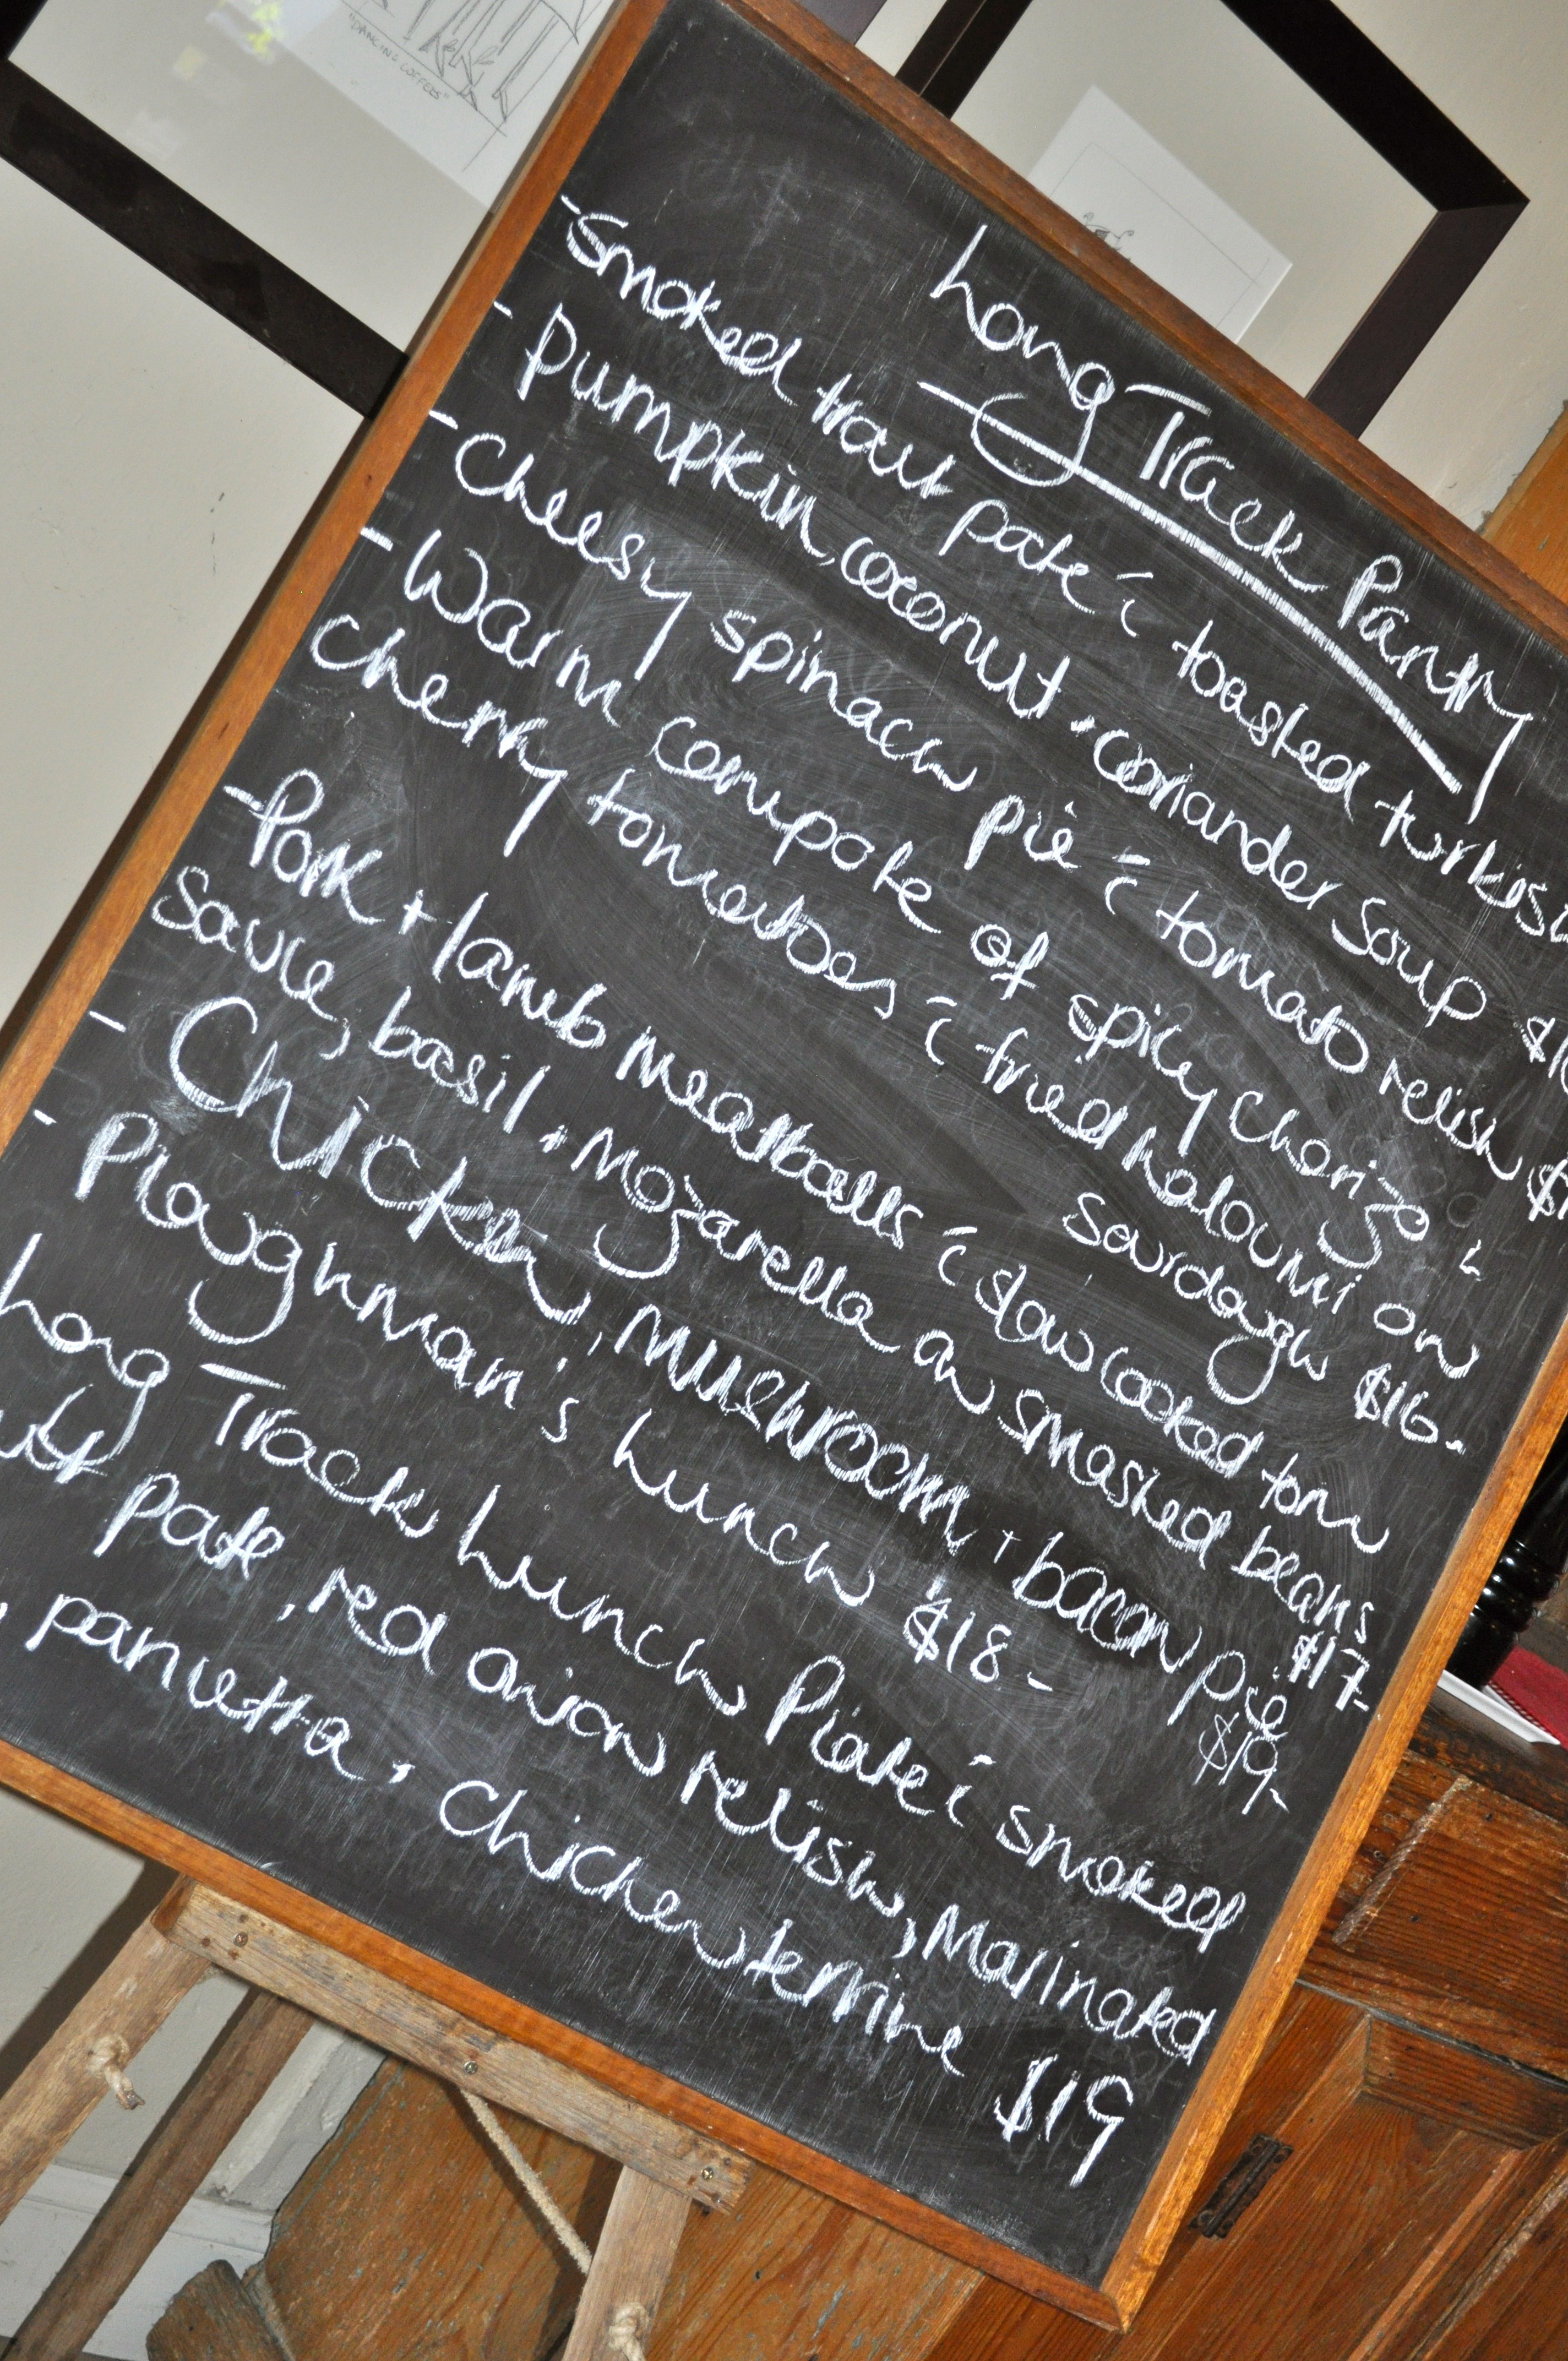 "DANCING COFFEES"
Long Track Pantry
- Smoked trout pate c̄ toasted turkish
- Pumpkin, coconut + coriander soup
- Cheesy spinach pie c̄ tomato relish
- Warm compote of spicy chorizo &
cherry tomatoes c̄ fried haloumi on
sourdough $16-
- Pork + lamb meatballs c̄ slow cooked tom
sauce, basil + mozarella on smashed beans
$17-
- Chicken, mushroom + bacon pie
$19-
- Ploughman's Lunch $18-
Long Track Lunch Plate c̄ smoked
pate, red onion relish, Marinated
, pancetta, chicken terrine $19